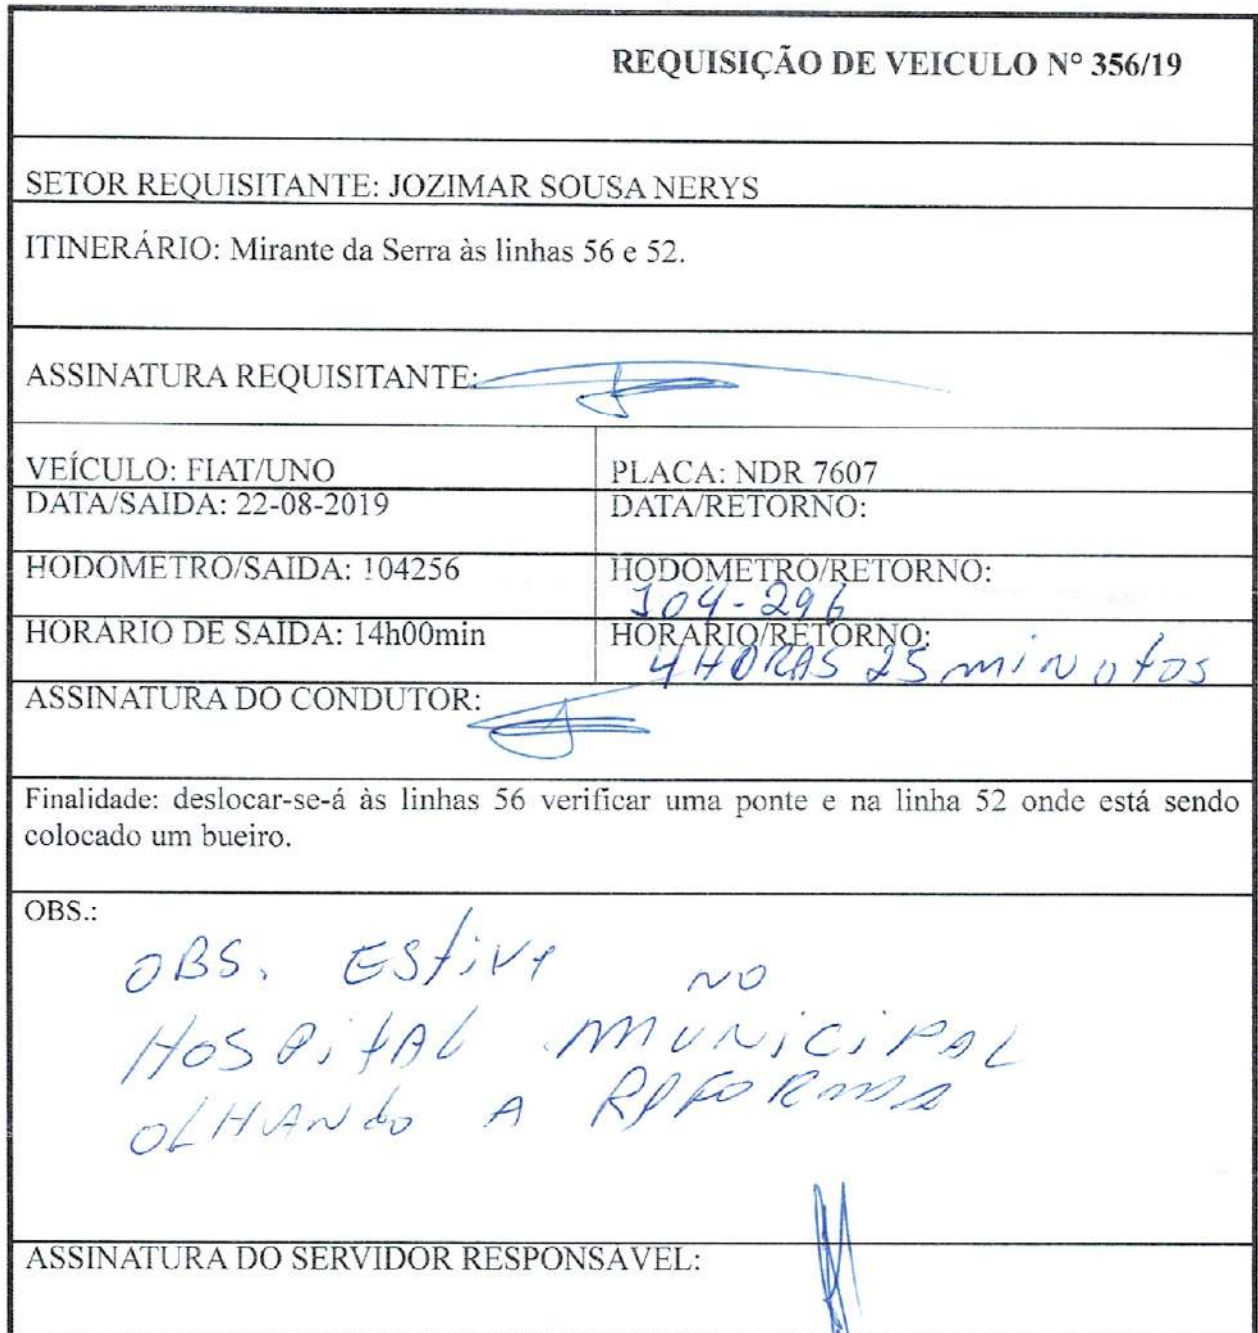 REQUISIÇÃO DE VEICULO Nº 356/19
SETOR REQUISITANTE: JOZIMAR SOUSA NERYS
ITINERÁRIO: Mirante da Serra às linhas 56 e 52.
ASSINATURA REQUISITANTE:
VEÍCULO: FIAT/UNO
PLACA: NDR 7607
DATA/SAIDA: 22-08-2019
DATA/RETORNO:
HODOMETRO/SAIDA: 104256
HODOMETRO/RETORNO:
104-296
HORARIO DE SAIDA: 14h00min
HORARIO/RETORNO:
4 HORAS 25 minutos
ASSINATURA DO CONDUTOR:
Finalidade: deslocar-se-á às linhas 56 verificar uma ponte e na linha 52 onde está sendo
colocado um bueiro.
OBS.:
OBS. EStive NO
HOSPitAL MUNiCiPAL
OLHANdo A ReFORMA
ASSINATURA DO SERVIDOR RESPONSAVEL: